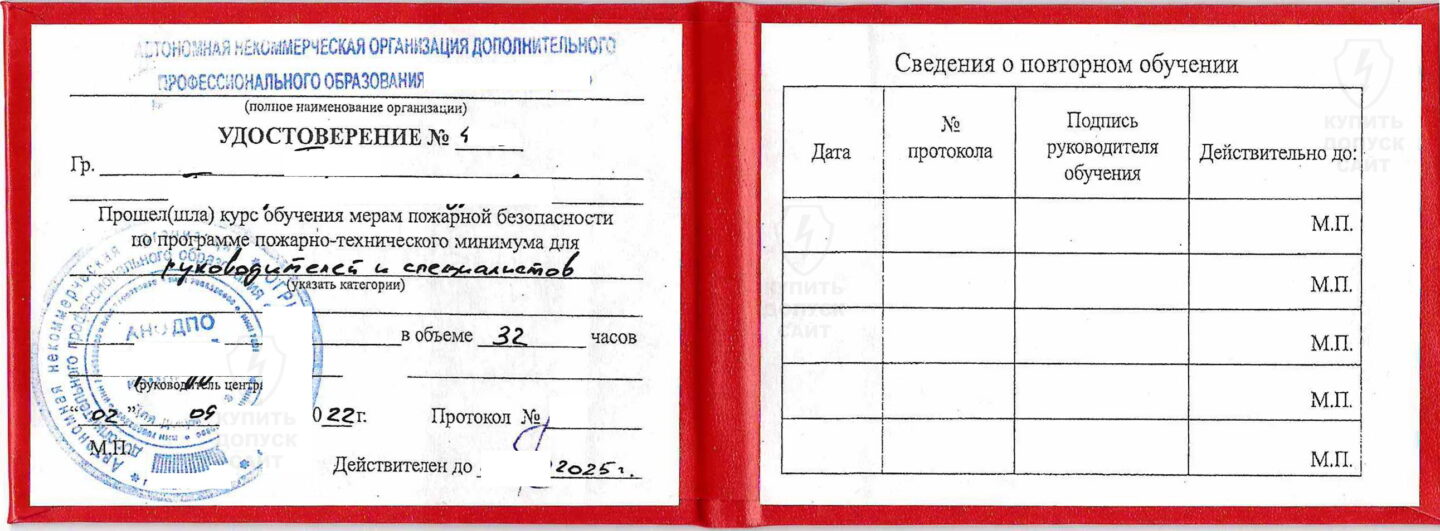 АВТОНОМНАЯ НЕКОММЕРЧЕСКАЯ ОРГАНИЗАЦИЯ ДОПОЛНИТЕЛЬНОГО
ПРОФЕССИОНАЛЬНОГО ОБРАЗОВАНИЯ
(полное наименование организации)
УДОСТОВЕРЕНИЕ №
Гр.
Прошел(шла) курс обучения мерам пожарной безопасности
по программе пожарно-технического минимума для
руководителей и специалистов
(указать категории)
АНО ДПО
в объеме 32 часов
(руководитель центра
"02" 09 022г. Протокол №
М.П.
Действителен до 2025г.
Автономная некоммерческая организация
Сведения о повторном обучении
Дата
№ протокола
Подпись руководителя обучения
Действительно до:
М.П.
М.П.
М.П.
М.П.
М.П.
КУПИТЬ
ДОПУСК
САЙТ
КУПИТЬ
ДОПУСК
САЙТ
КУПИТЬ
ДОПУСК
САЙТ